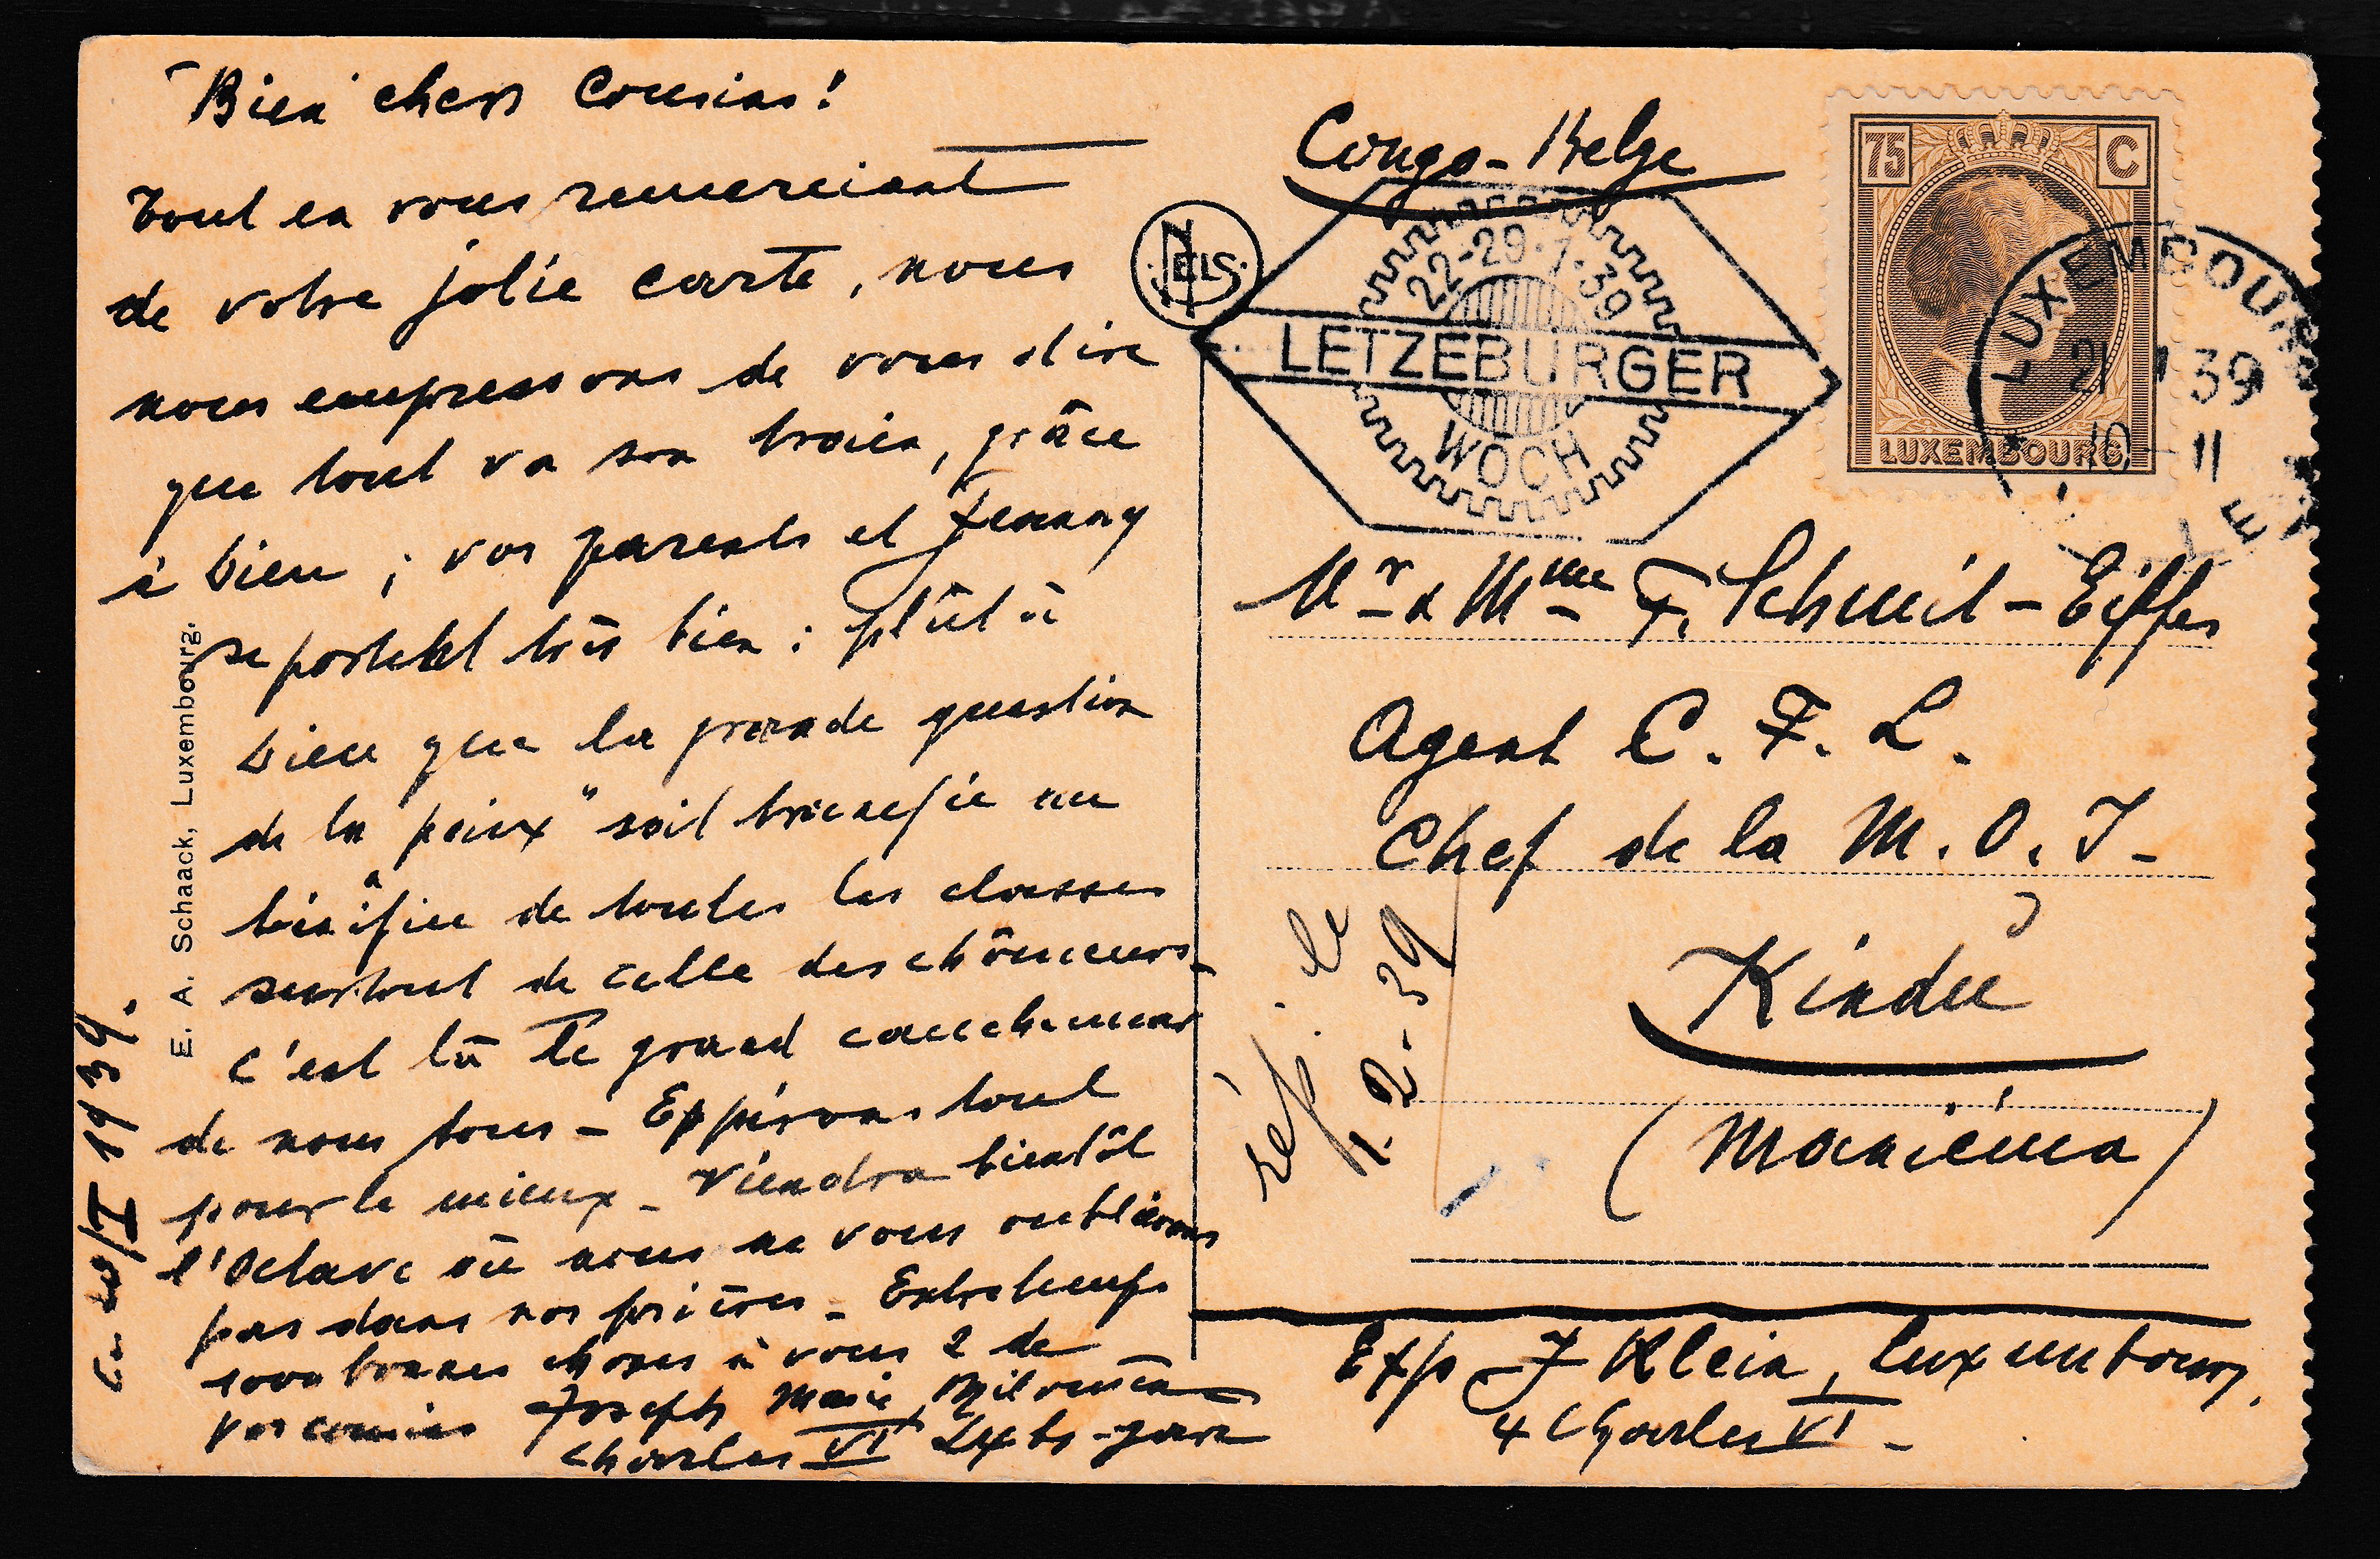 Bien chers Cousins!
Tout en vous remerciant
de votre jolie carte, nous
nous empressons de vous dire
que tout va son train, grâce
à Dieu ; vos parents et Jeanny
se portent très bien ; plût à
Dieu que la grande question
de la "paix" soit tranchée au
bénéfice de toutes les classes
surtout de celle des chômeurs -
c'est là le grand cauchemar
de nous tous - Espérons tout
pour le mieux - Viendra bientôt
l'Octave où nous ne vous oublierons
pas dans nos prières - Entretemps
1000 bonnes choses à vous 2 de
vos cousins Joseph Marie
Charles VI Lxbg-gare
20/I 1939.
E. A. Schaack, Luxembourg.
NELS
Congo-Belge
22-29·1·39
LETZEBURGER
WOCH
75 C
LUXEMBOURG
LUXEMBOURG
21 1 39
10 - 11
Mr & Mme F. Schmit-Eiffes
Agent C. F. L.
Chef de la M. O. I-
Kindu
(Maniéma)
rép. le
1-2-39
Exp J Klein, Luxembourg,
4 Charles VI -